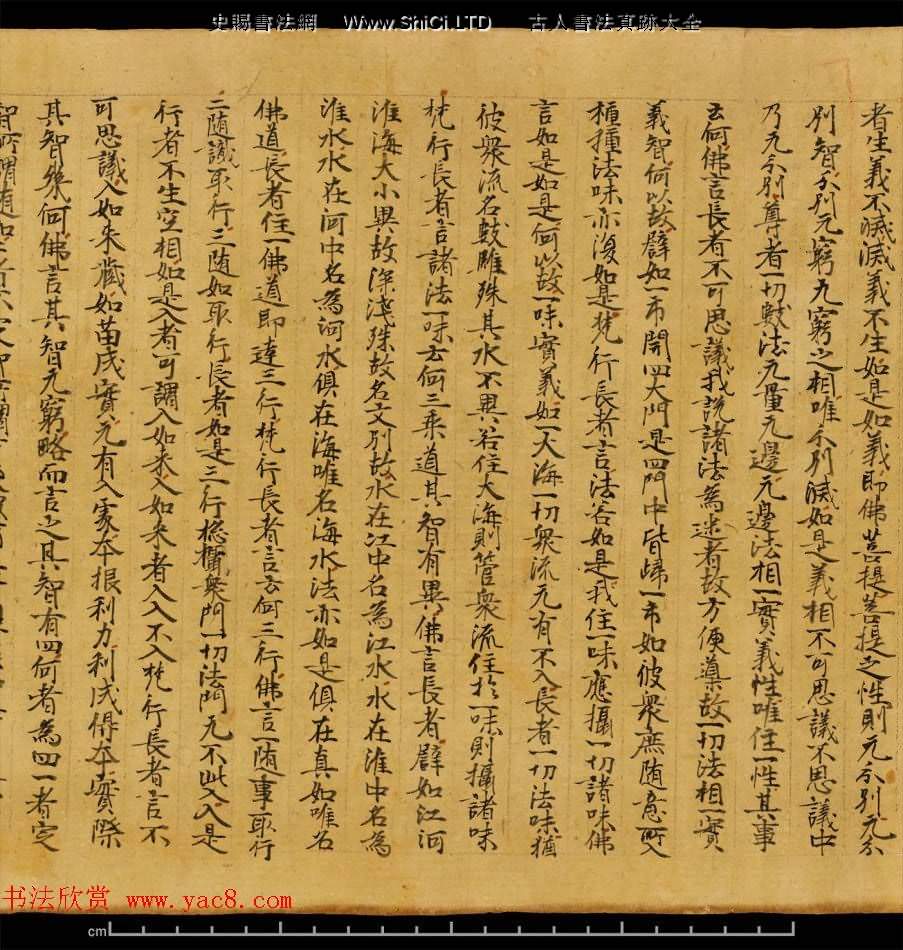 史賜書法網 Www.ShiCi.LTD 古人書法真跡大全
者生義不滅滅義不生如是如義即佛菩提菩提之性則无分別无分
別智分別无窮无窮之相唯分別滅如是義相不可思議不思議中
乃无分別尊者一切數法无量无邊无邊法相一實義性唯住一性其事
云何佛言長者不可思議我說諸法為迷者故方便導故一切法相一實
義智何以故譬如一市開四大門是四門中皆歸一市如彼衆庶随意所入
種種法味亦復如是梵行長者言法若如是我住一味應攝一切諸味佛
言如是如是何以故一味實義如一大海一切衆流无有不入長者一切法味猶
彼衆流名數雖殊其水不異若住大海則管衆流住於一味則攝諸味
梵行長者言諸法一味云何三乘道其智有異佛言長者譬如江河
淮海大小異故深淺殊故名文別故水在江中名為江水水在淮中名為
淮水水在河中名為河水俱在海唯名海水法亦如是俱在真如唯名
佛道長者住一佛道即達三行梵行長者言云何三行佛言一随事取行
二随識取行三随如取行長者如是三行捴攝衆門一切法門无不此入入是
行者不生空相如是入者可謂入如来入如来者入入不入梵行長者言不
可思議入如来蔵如苗成實无有入處本根利力利成得本實際
其智幾何佛言其智无窮略而言之其智有四何者為四一者定
智所謂随如
书法欣赏 www.yac8.com
cm